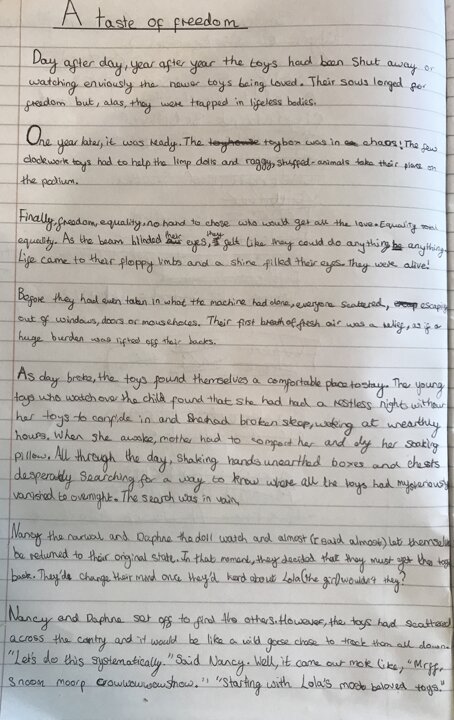 A taste of freedom
Day after day, year after year the toys had been shut away or
watching enviously the newer toys being loved. Their souls longed for
freedom but, alas, they were trapped in lifeless bodies.
One year later, it was ready. The toyhouse toybox was in chaos! The few
clockwork toys had to help the limp dolls and raggy, stuffed-animals take their place on
the podium.
Finally, freedom, equality, no hand to chose who would get all the love. Equality
equality. As the beam blinded their eyes, they felt like they could do anything anything.
Life came to their floppy limbs and a shine filled their eyes. They were alive!
Before they had even taken in what the machine had done, everyone scattered, escaping
out of windows, doors or mouseholes. Their first breath of fresh air was a relief, as if a
huge burden was lifted off their backs.
As day broke, the toys found themselves a comfortable place to stay. The young
toys who watch over the child found that she had had a restless night without
her toys to confide in and she had broken sleep, waking at unearthly
hours. When she awoke, mother had to comfort her and dry her soaking
pillow. All through the day, shaking hands unearthed boxes and chests
desperately searching for a way to know where all the toys had mysteriously
vanished to overnight. The search was in vain.
Nancy the narwal and Daphne the doll watch and almost (I said almost) let themselves
be returned to their original state. In that moment, they decided that they must get the toys
back. They'd change their mind once they'd heard about Lola (the girl) wouldn't they?
Nancy and Daphne set off to find the others. However, the toys had scattered
across the contry and it would be like a wild goose chase to track them all down.
"Let's do this systematically." Said Nancy. Well, it came out more like, "Mrff,
snoom moorp crowwowwowshow." "Starting with Lola's most beloved toys."